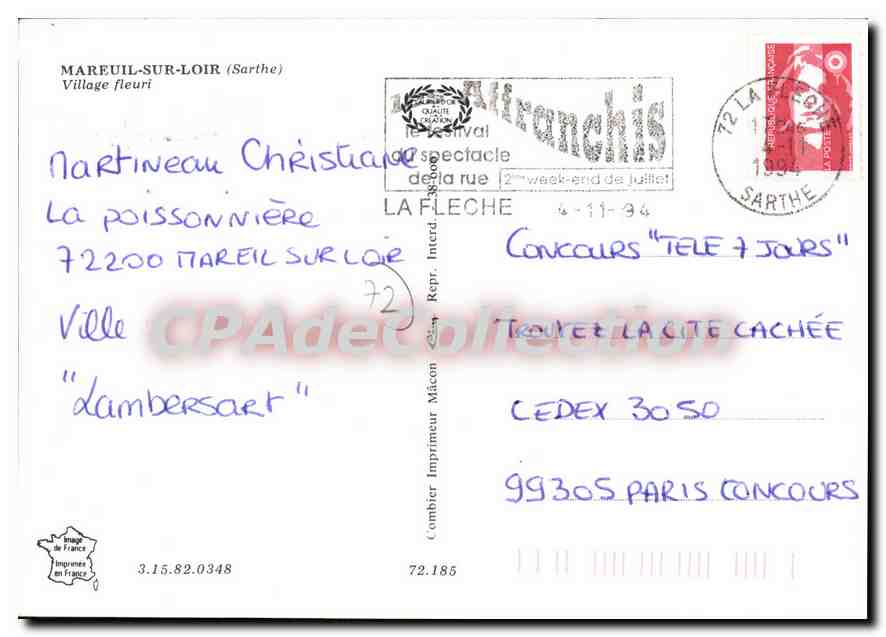 MAREUIL-SUR-LOIR (Sarthe)
Village fleuri
Martineau Christiane
La Poissonnière
72200 Mareil sur Loir
72
Ville
"Lambersart"
Image
de France
Imprimée
en France
3.15.82.0348
72.185
Combier Imprimeur Mâcon Repr. Interd.
QUALITÉ
CRÉATION
Affranchis
le festival
du spectacle
de la rue
2ème week-end de juillet
LA FLECHE 4-11-94
72 LA FLECHE
4-11
1994
SARTHE
REPUBLIQUE FRANÇAISE
LA POSTE
CONCOURS "TELE 7 JOURS"
TROUVEZ LA CITE CACHÉE
CEDEX 3050
99305 PARIS CONCOURS
CPAdeCollection